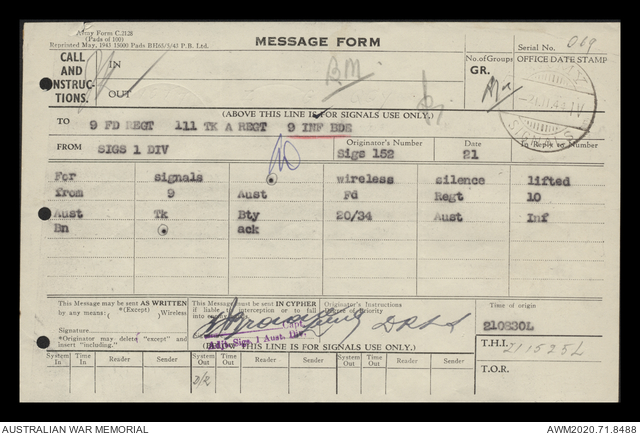 Army Form C.2128
(Pads of 100)
Reprinted May, 1943 15000 Pads
MESSAGE FORM
Serial No. 069
CALL AND INSTRUCTIONS.
IN
OUT
BM
No. of Groups
GR.
OFFICE DATE STAMP
SIGNALS
(ABOVE THIS LINE IS FOR SIGNALS USE ONLY.)
TO 9 FD REGT 111 TK A REGT 9 INF BDE
FROM SIGS 1 DIV
Originator's Number
Sigs 152
Date
21
In Reply to Number
For signals wireless silence lifted
from 9 Aust Fd Regt 10
Aust Tk Bty 20/34 Aust Inf
Bn ack
This Message may be sent AS WRITTEN
by any means: (*(Except) Wireless
Signature
*Originator may delete "except" and
insert "including."
This Message must be sent IN CYPHER
if liable to interception or to fall
Capt.
Adjt. Sigs. 1 Aust. Div.
Originator's Instructions
Degree of Priority
DRLS
Time of origin
210830L
T.H.I. 211525L
T.O.R.
(BELOW THIS LINE IS FOR SIGNALS USE ONLY.)
System In
Time In
Reader
Sender
System Out
Time Out
Reader
Sender
System Out
Time Out
Reader
Sender
D/R
AUSTRALIAN WAR MEMORIAL
AWM2020.71.8488